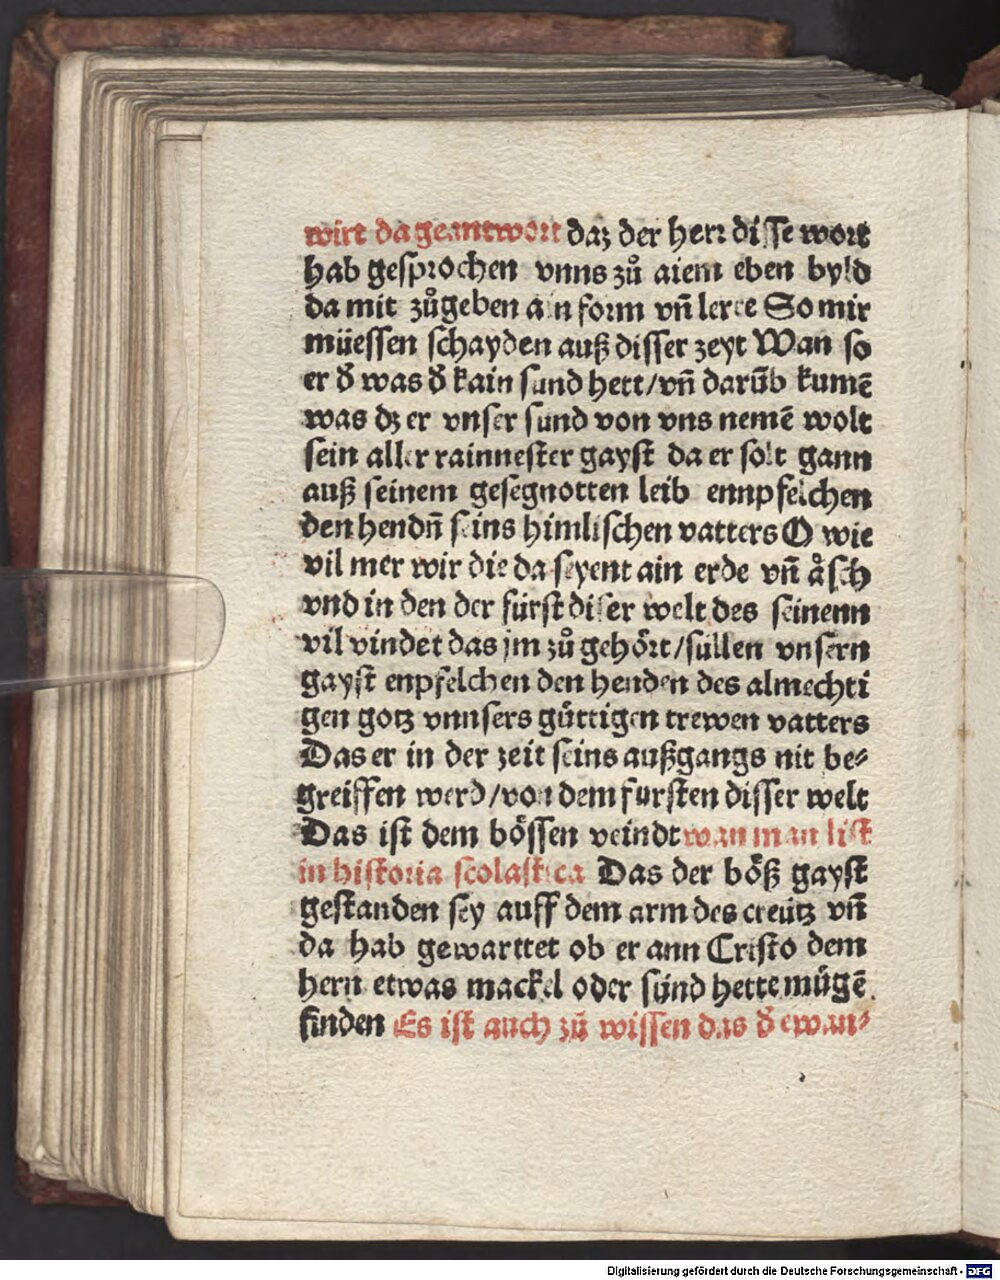 wirt da geantwort daz der herr disse wort
hab gesprochen vnns zů aiem eben byld
da mit zůgeben ain form vñ leree So mir
müessen schayden auß disser zeyt Wan so
er d̕ was d̕ kain sund hett/vñ darūb kumē
was dz er vnser sund von vns nemē wolt
sein aller rainnester gayst da er solt gann
auß seinem gesegnotten leib ennpfelchen
den hendñ seins himlischen vatters O wie
vil mer wir die da seyent ain erde vñ åsch
vnd in den der fürst diser welt des seinenn
vil vindet das jm zů gehört/süllen vnsern
gayst enpfelchen den henden des almechti
gen gotz vnnsers güttigen trewen vatters
Das er in der zeit seins außgangs nit be⸗
greiffen werd/von dem fursten disser welt
Das ist dem bössen veindt wan man list
in historia scolastica Das der böß gayst
gestanden sey auff dem arm des creütz vñ
da hab gewarttet ob er ann Cristo dem
hern etwas mackel oder sünd hette mügē
finden Es ist auch zů wissen das d̕ ewan⸗
Digitalisierung gefördert durch die Deutsche Forschungsgemeinschaft - DFG